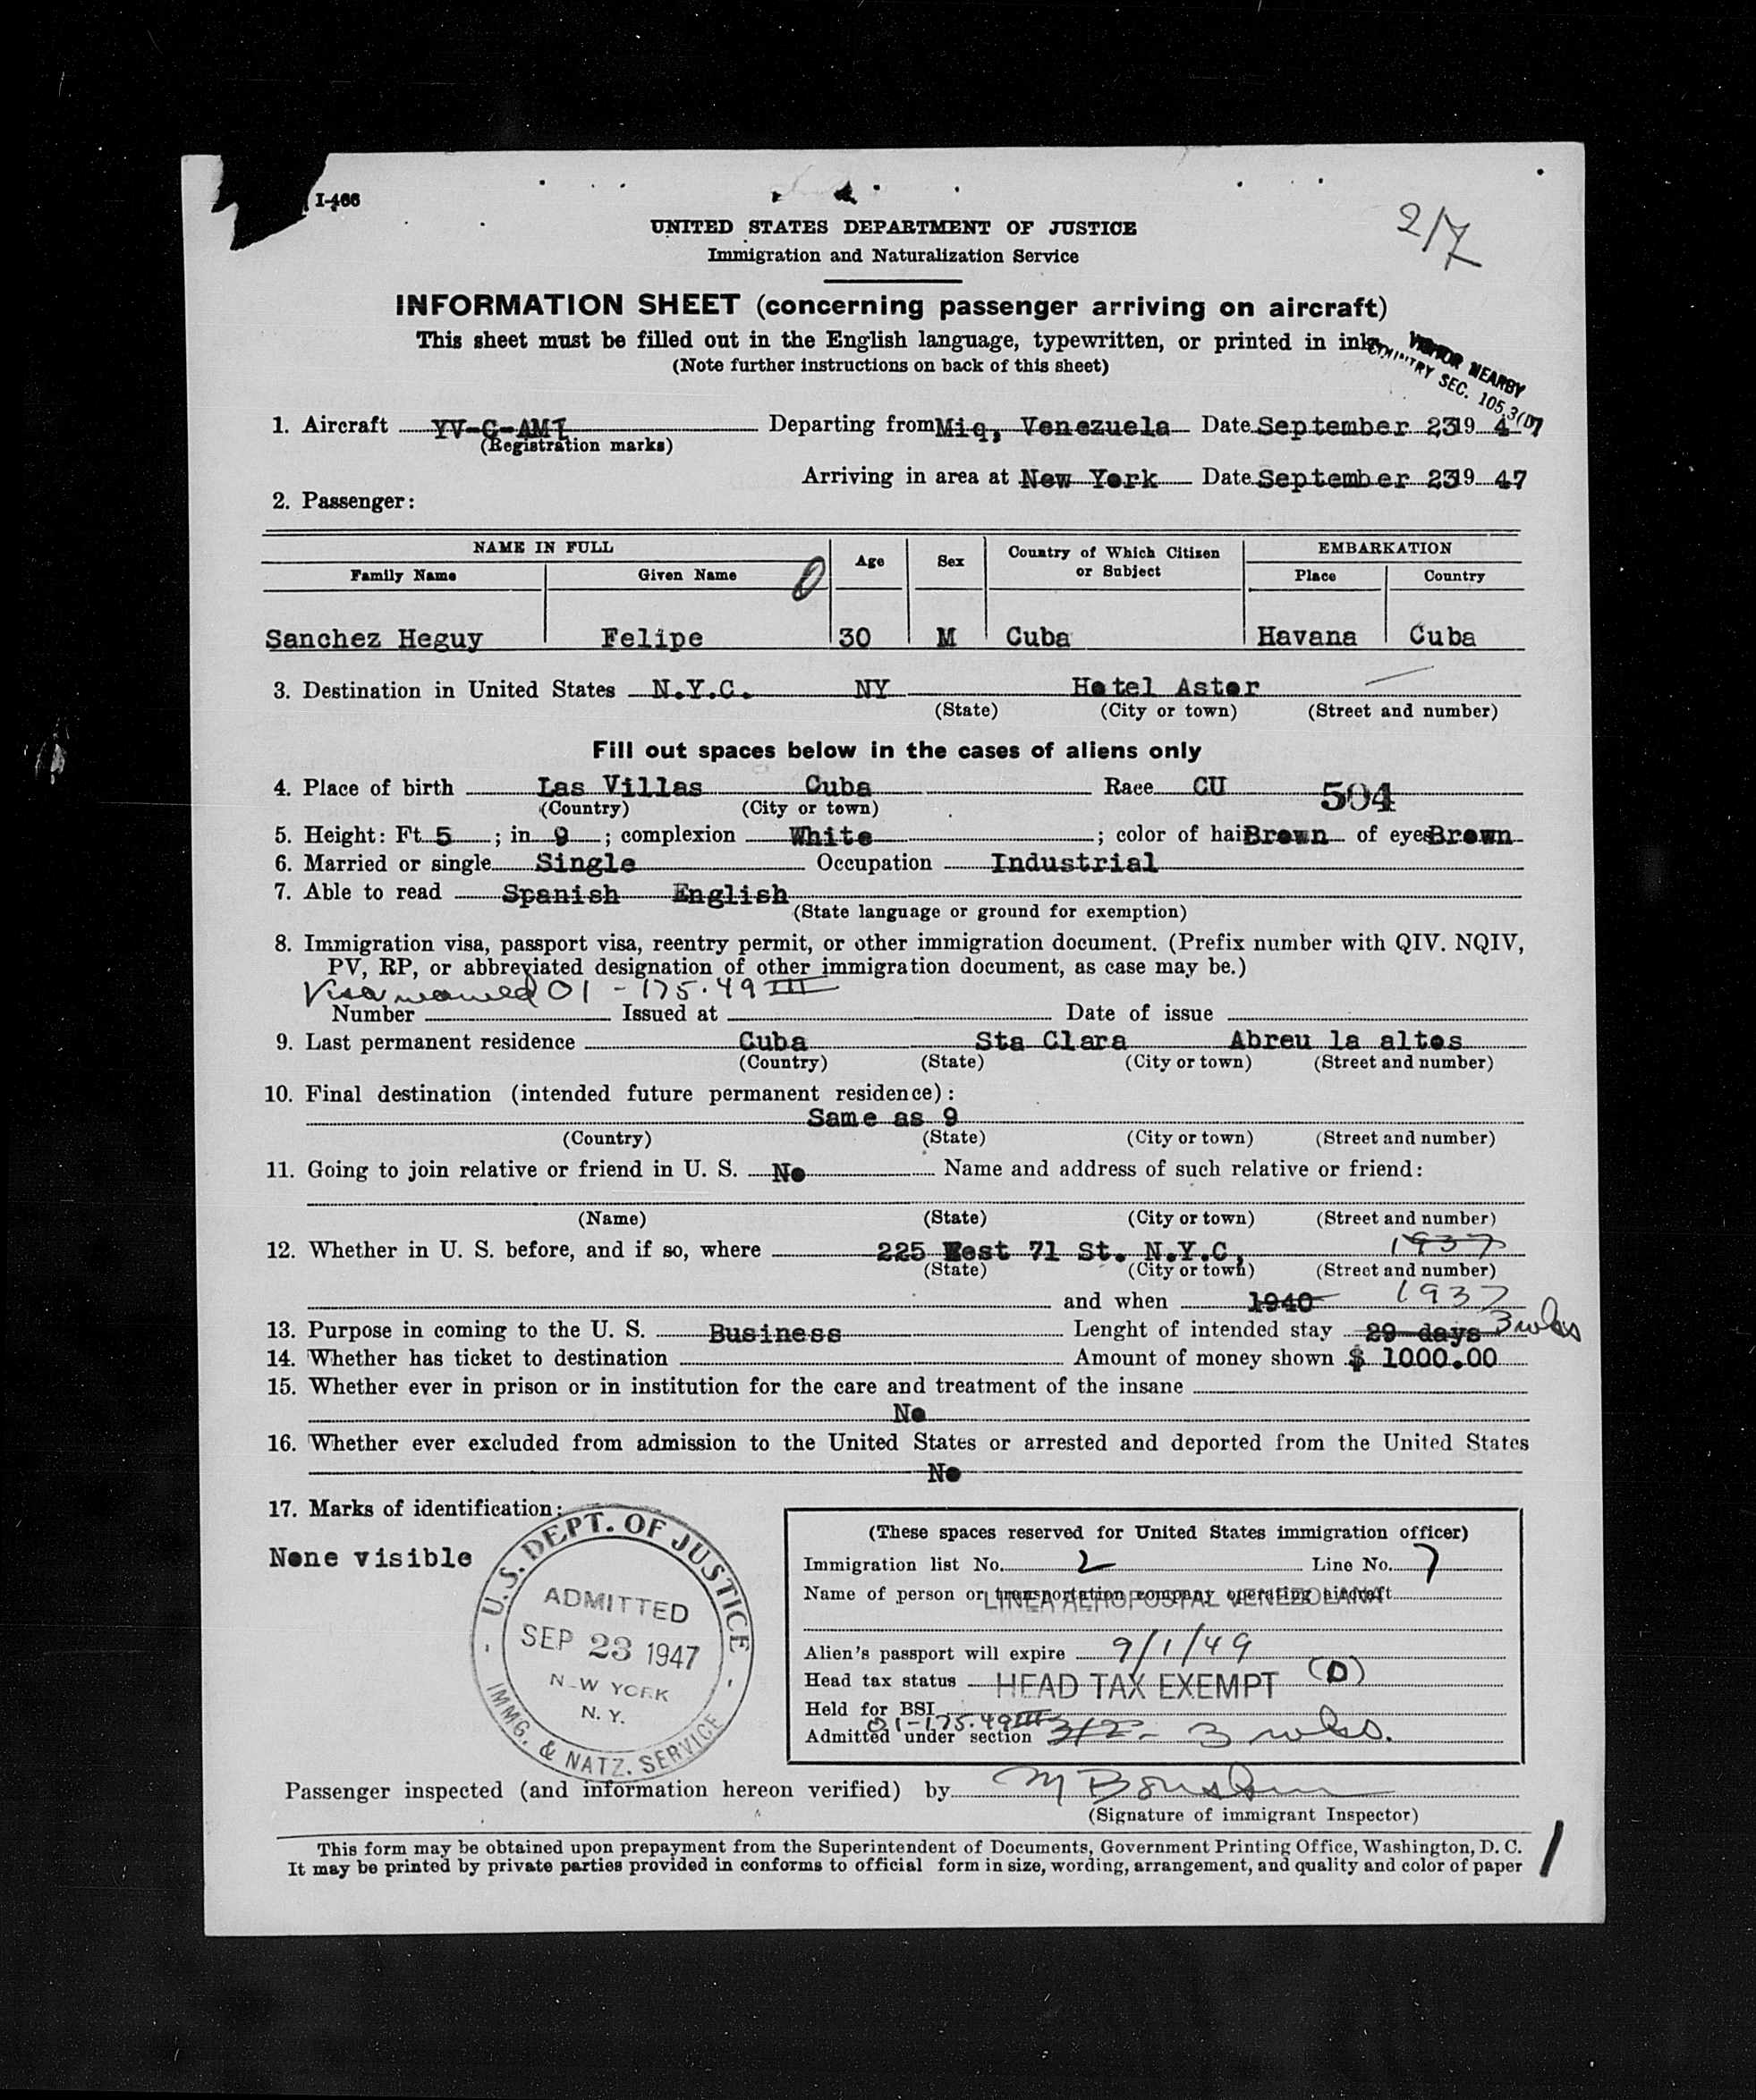 I-466
2/7
UNITED STATES DEPARTMENT OF JUSTICE
Immigration and Naturalization Service
INFORMATION SHEET (concerning passenger arriving on aircraft)
This sheet must be filled out in the English language, typewritten, or printed in ink.
(Note further instructions on back of this sheet)
NEARBY
COUNTRY SEC. 105.3(D)
1. Aircraft YV-C-AMI Departing from Miq, Venezuela Date September 23 19 47
(Registration marks)
Arriving in area at New York Date September 23 19 47
2. Passenger:
NAME IN FULL Age Sex Country of Which Citizen or Subject EMBARKATION
Family Name Given Name Place Country
Sanchez Heguy Felipe 30 M Cuba Havana Cuba
3. Destination in United States N.Y.C. NY Hotel Astor
(State) (City or town) (Street and number)
Fill out spaces below in the cases of aliens only
4. Place of birth Las Villas Cuba Race CU 504
(Country) (City or town)
5. Height: Ft 5 ; in 9 ; complexion White ; color of hair Brown of eyes Brown
6. Married or single Single Occupation Industrial
7. Able to read Spanish English
(State language or ground for exemption)
8. Immigration visa, passport visa, reentry permit, or other immigration document. (Prefix number with QIV. NQIV,
PV, RP, or abbreviated designation of other immigration document, as case may be.)
Visa waived 01-175.49 III
Number Issued at Date of issue
9. Last permanent residence Cuba Sta Clara Abreu la altos
(Country) (State) (City or town) (Street and number)
10. Final destination (intended future permanent residence):
Same as 9
(Country) (State) (City or town) (Street and number)
11. Going to join relative or friend in U. S. No Name and address of such relative or friend:
(Name) (State) (City or town) (Street and number)
12. Whether in U. S. before, and if so, where 225 West 71 St. N.Y.C, 1937
(State) (City or town) (Street and number)
and when 1940 1937
13. Purpose in coming to the U. S. Business Lenght of intended stay 29 days 3 wks
14. Whether has ticket to destination Amount of money shown $ 1000.00
15. Whether ever in prison or in institution for the care and treatment of the insane
No
16. Whether ever excluded from admission to the United States or arrested and deported from the United States
No
17. Marks of identification:
None visible
U.S. DEPT. OF JUSTICE
ADMITTED
SEP 23 1947
N.W YORK
N. Y.
IMMG. & NATZ. SERVICE
(These spaces reserved for United States immigration officer)
Immigration list No. 2 Line No. 7
Name of person or transportation company operating aircraft
LINEA AEROPOSTAL VENEZOLANA
Alien's passport will expire 9/1/49
Head tax status HEAD TAX EXEMPT (D)
Held for BSI
01-175.49 III
Admitted under section 3/2- 3 wks.
Passenger inspected (and information hereon verified) by
(Signature of immigrant Inspector)
This form may be obtained upon prepayment from the Superintendent of Documents, Government Printing Office, Washington, D. C.
It may be printed by private parties provided in conforms to official form in size, wording, arrangement, and quality and color of paper